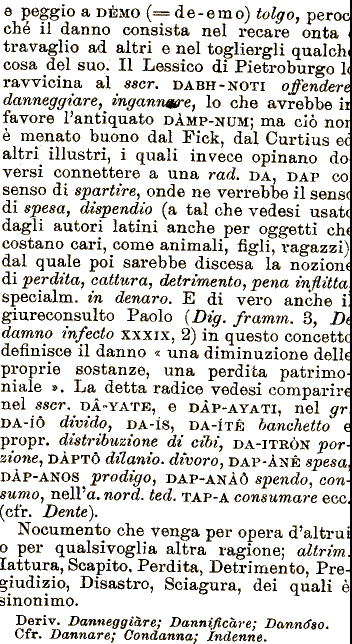 e peggio a DÈMO (= de-emo) tolgo, peroc
ché il danno consista nel recare onta
travaglio ad altri e nel togliergli qualch
cosa del suo. Il Lessico di Pietroburgo l
ravvicina al sscr. DABH-NOTI offendere
danneggiare, ingannare, lo che avrebbe i
favore l'antiquato DÀMP-NUM; ma ciò nor
è menato buono dal Fick, dal Curtius ed
altri illustri, i quali invece opinano do
versi connettere a una rad. DA, DAP co
senso di spartire, onde ne verrebbe il senso
di spesa, dispendio (a tal che vedesi usato
dagli autori latini anche per oggetti che
costano cari, come animali, figli, ragazzi)
dal quale poi sarebbe discesa la nozione
di perdita, cattura, detrimento, pena inflitta
specialm. in denaro. E di vero anche il
giureconsulto Paolo (Dig. framm. 3, De
damno infecto XXXIX, 2) in questo concetto
definisce il danno « una diminuzione delle
proprie sostanze, una perdita patrimo-
niale ». La detta radice vedesi comparire
nel sscr. DÂ-YATE, e DÀP-AYATI, nel gr.
DA-ÍÔ divido, DA-ÍS, DA-ÍTÊ banchetto e
propr. distribuzione di cibi, DA-ITRÒN por-
zione, DÀPTÔ dilanio. divoro, DAP-ÀNÊ spesa,
DÀP-ANOS prodigo, DAP-ANÀÔ spendo, con-
sumo, nell'a. nord. ted. TAP-A consumare ecc.
(cfr. Dente).
Nocumento che venga per opera d'altrui
o per qualsivoglia altra ragione; altrim.
Iattura, Scapito. Perdita, Detrimento, Pre-
giudizio, Disastro, Sciagura, dei quali è
sinonimo.
Deriv. Danneggiàre; Dannificàre; Dannóso.
Cfr. Dannare; Condanna; Indenne.